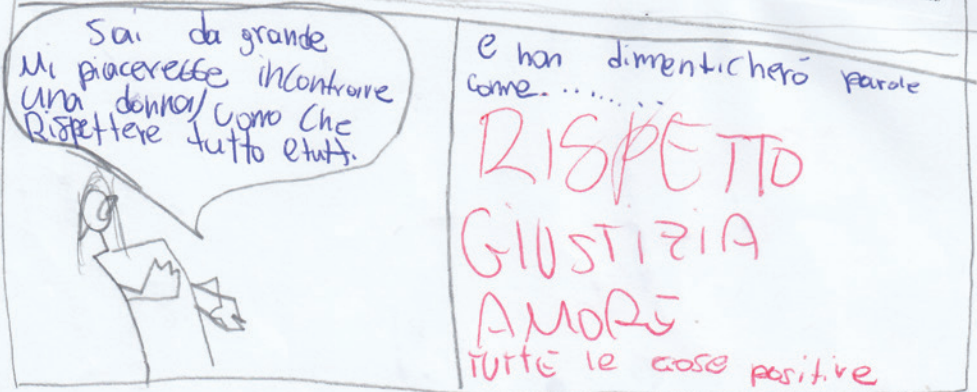 Sai da grande
Mi piacerebbe incontrare
una donna/uomo che
Rispettere tutto e tutti.
e non dimenticherò parole
come.........
RISPETTO
GIUSTIZIA
AMORE
TUTTE le cose positive